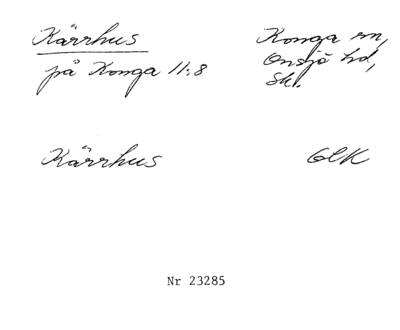 Kärrhus
på Konga 11:8
Konga sn,
Onsjö hd,
Sk.
Kärrhus
GEK
Nr 23285